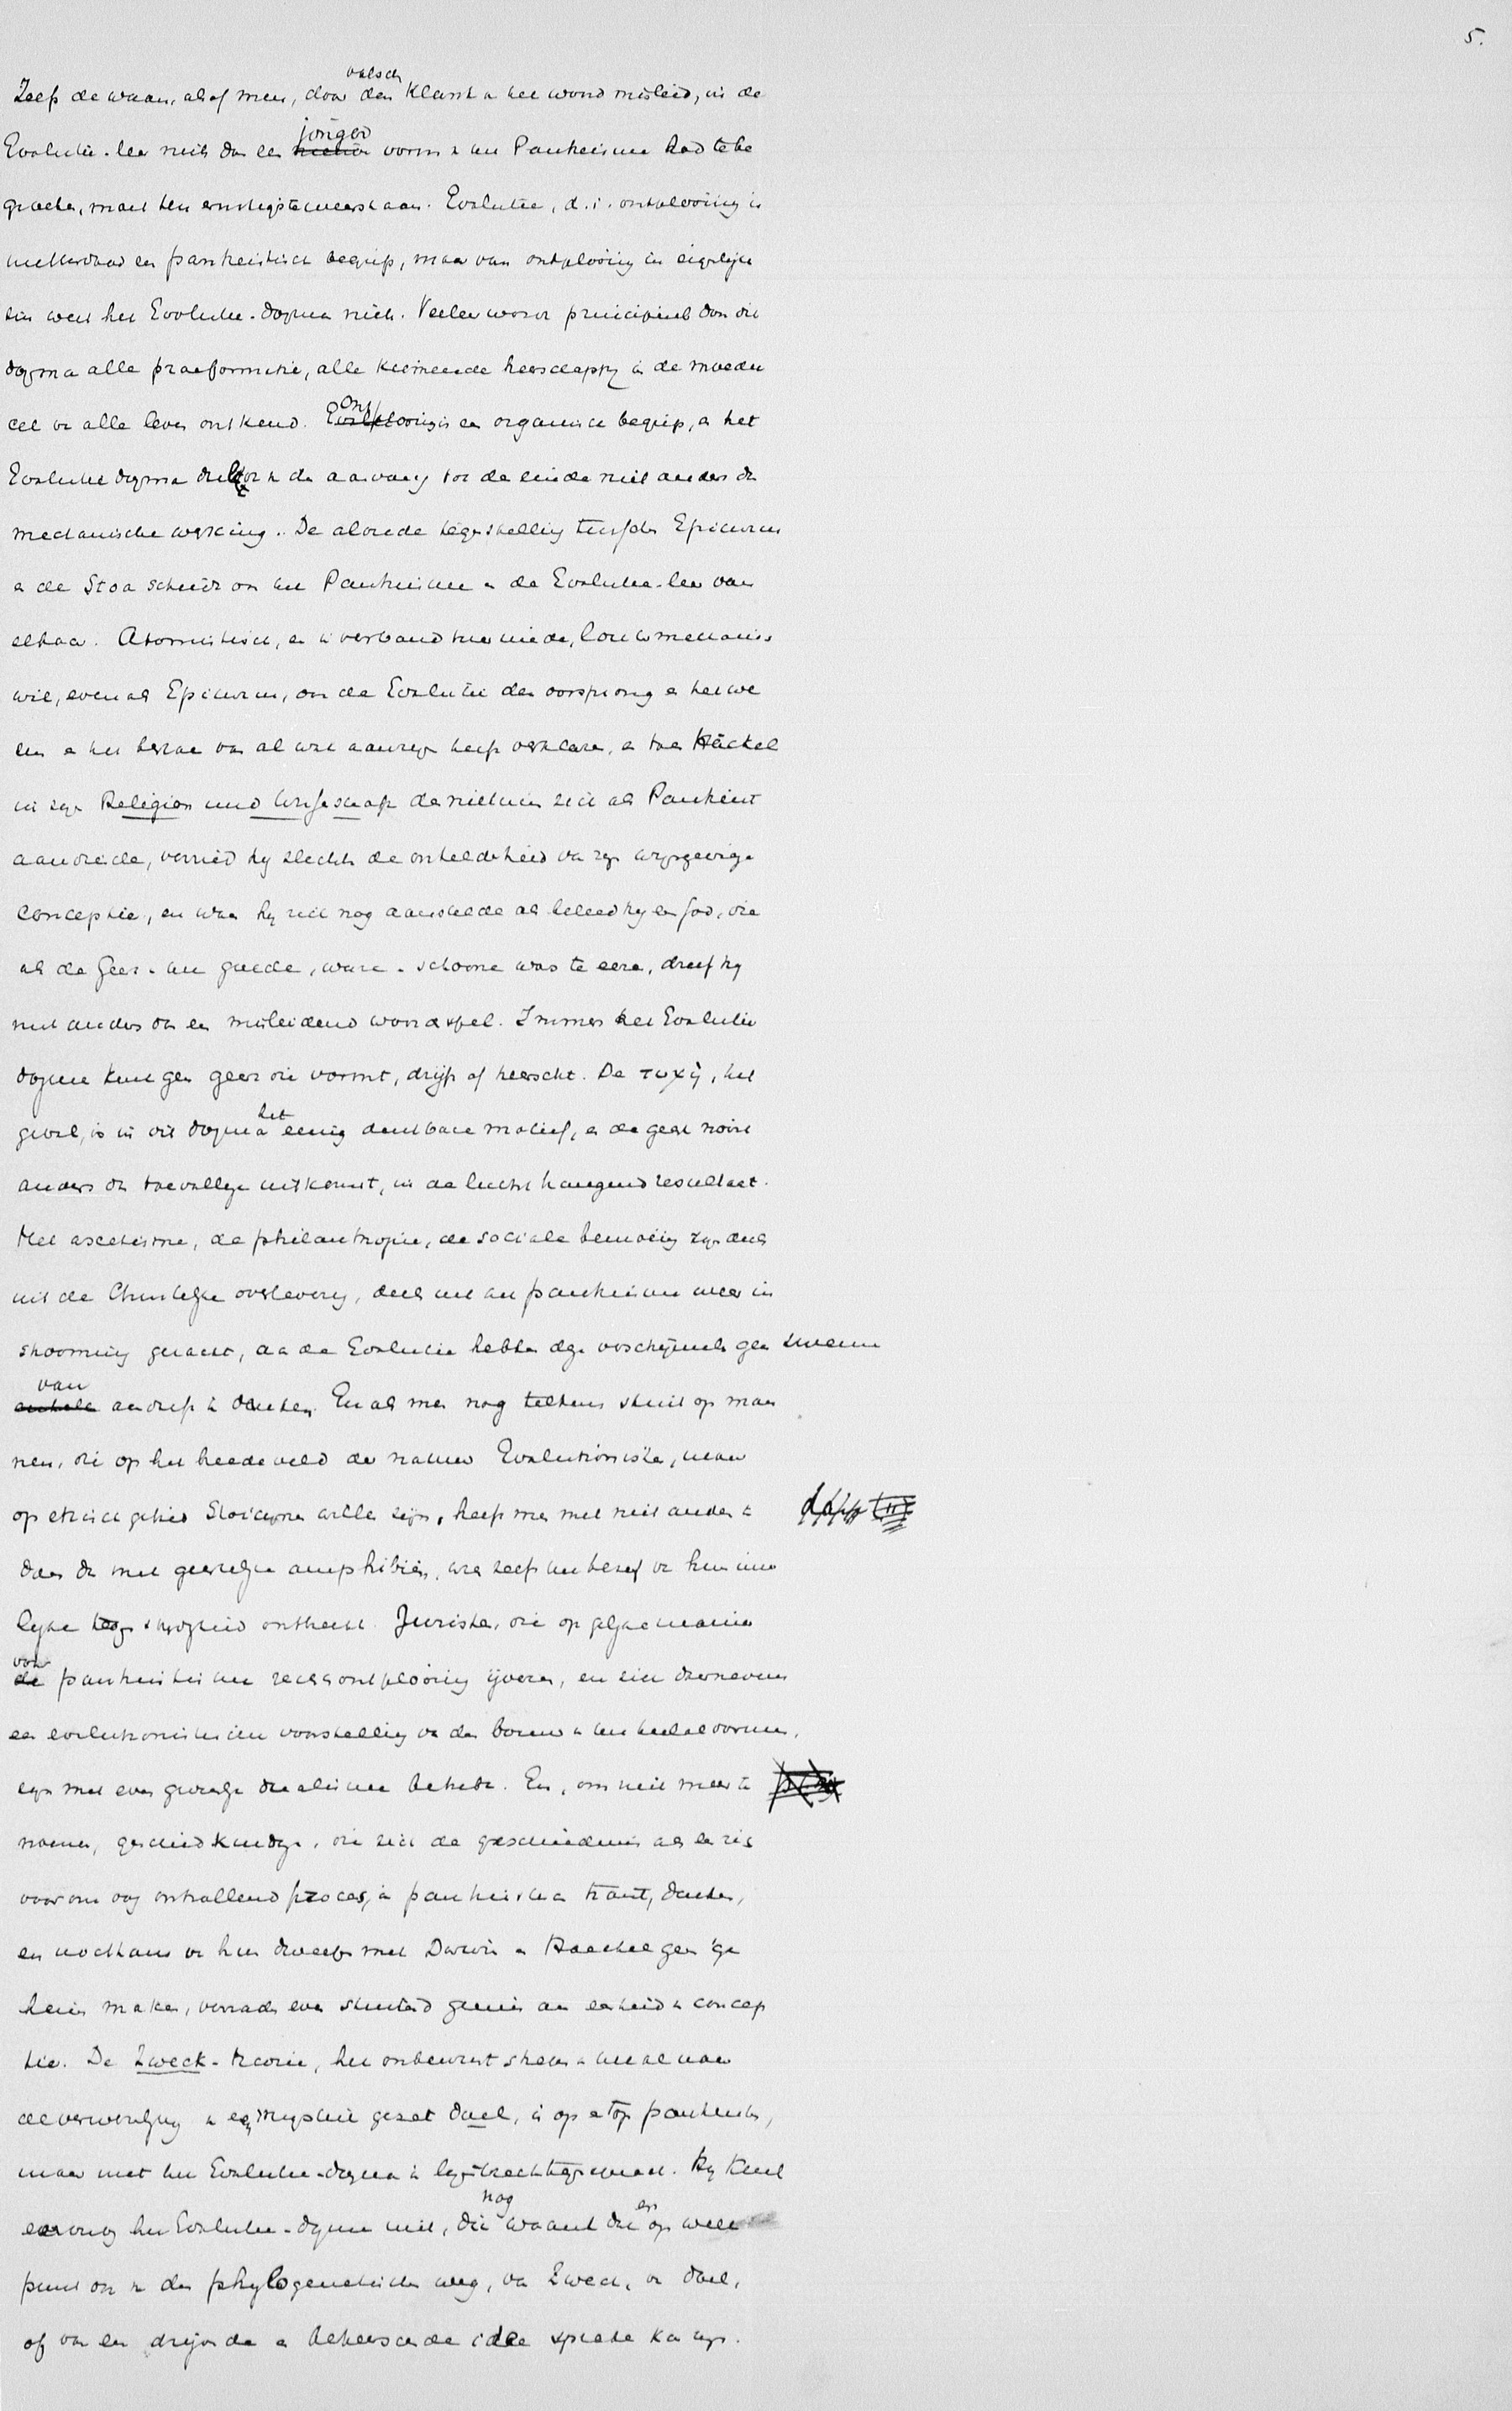 5.
Zelfs de waan, alsof men, door den valsch klank van het woord misleid, in de
Evolutie-leer niets dan een jonger vorm van het Pantheisme had te be
groeten, moet ten ernstigste weerstaan. Evolutie, d.i. ontplooiing is
metterdaad een pantheistisch begrip, maar van ontplooiing in eigenlijke
zin weet het Evolutie-dogma niets. Veeleer wordt principieel door dit
dogma alle praeformatie, alle kiemende heerschappij in de moeder
cel van alle leven ontkend. Ontplooiing is een organisch begrip, en het
Evolutie dogma duldt van den aanvang tot den einde niet anders dan
mechanische werking. De aloude tegenstelling tusschen Epicurus
en de Stoa scheidt ook het Pantheisme en de Evolutie-leer van
elkaar. Atomistisch, en in verband hiermede, louter mechanisch
wil, evenals Epicurus, ook de Evolutie den oorsprong en het we
zen en het bestaan van al wat aanzijn heeft verklaren, en toen Häckel
in zijn Religion und Wissenschaft desniettemin zich als Pantheist
aandiende, verried hij slechts de onhelderheid van zijn wijsgeerige
conceptie, en waar hij zich nog aanstelde als beleed hij een God, die
als de Geest van het goede, ware en schoone was te eeren, dreef hij
niet anders dan een misleidend woordspel. Immers het Evolutie
dogma kent geen geest die vormt, drijft of heerscht. De τυχή, het
geval, is in dit dogma het eenig denkbare motief, en de geest nooit
anders dan toevallige uitkomst, in de lucht hangend resultaat.
Het ascetisme, de philantropie, de sociale bemoeiing zijn deels
uit de Christelijke overlevering, deels uit het pantheisme weer in
strooming geraakt, aan de Evolutie hebben deze verschijnselen geen zweem
van aandrift te danken. En als men nog telkens stuit op man
nen, die op het breede veld der natuur Evolutionisten, maar
op ethisch gebied Stoicijnen willen zijn, heeft men met niet anders te
doen dan met geestelijke amphibiën, wien zelfs het besef van hun inner
lijke tegenstrijdigheid ontbreekt. Juristen, die op gelijke manier
voor pantheistische rechtsontplooiing ijveren, en zich daarnevens
een evolutionistische voorstelling van den bouw van het heelal vormen,
zijn met even gevaarlijk dualisme behebt. En, om niet meer te
noemen, geschiedkundigen, die zich de geschiedenis als een zich
voor ons oog ontrollend proces, in pantheistischen trant, denken,
en nochtans van hun dweepen met Darwin en Haeckel geen ge
heim maken, verraden even stuitend gemis aan eenheid van concep
tie. De Zweck-theorie, het onbewust streven van het al naar
de verwerkelijking van een mystiek gezet doel, is op en top pantheistisch,
maar met het Evolutie-dogma in lijnrechten tegenspraak. Hij kent
eenvoudig het Evolutie-dogma niet, die nog waant dat er op welk
punt ook van den phylogenetischen weg, van Zweck, van doel,
of van een drijvende en beheerschende idee sprake kan zijn.